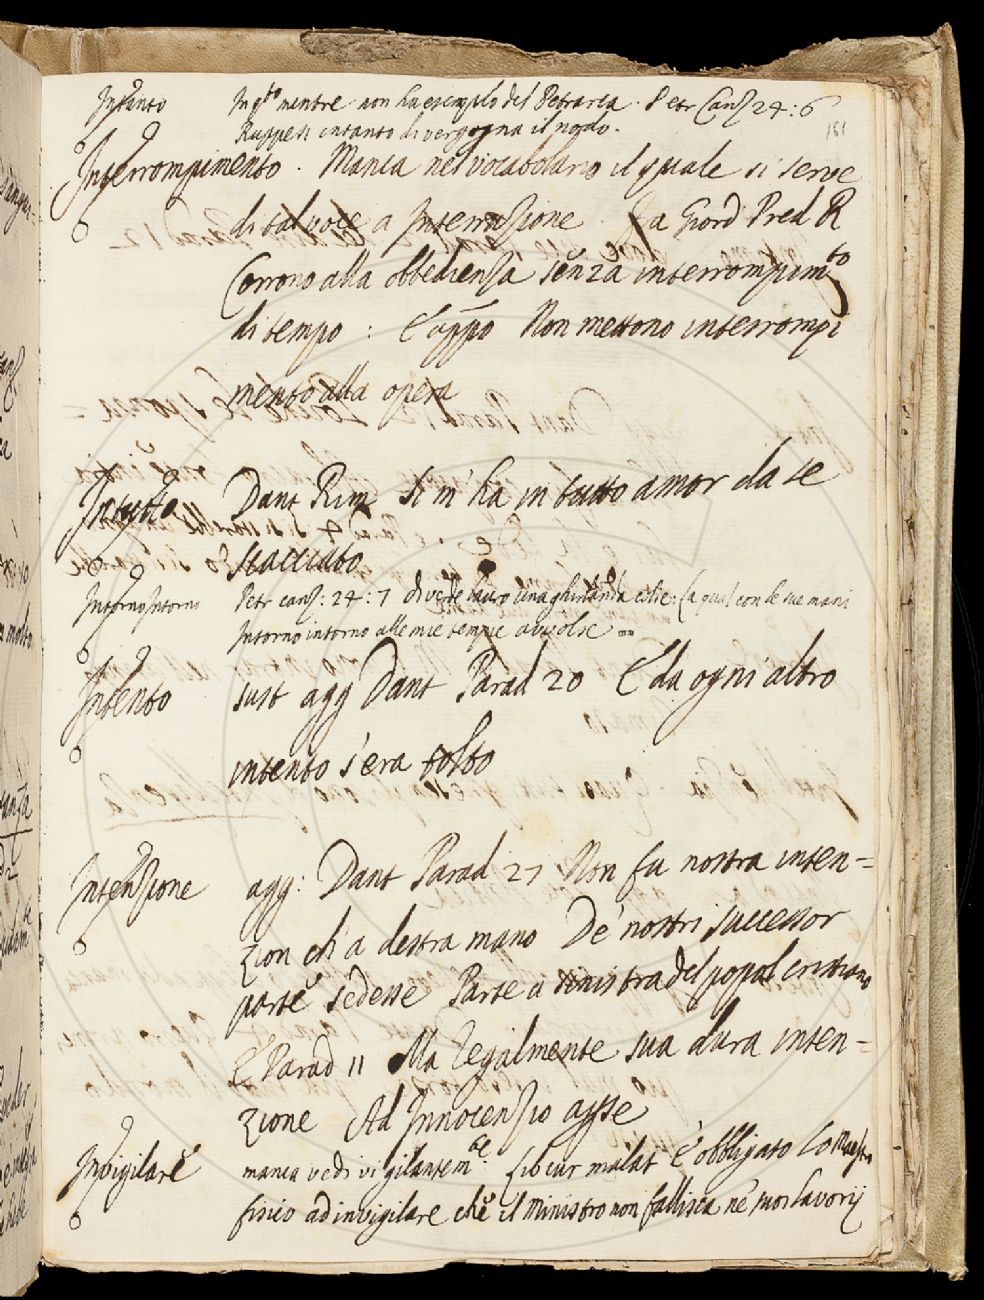 Intanto In q.to mentre non ha esemplo del Petrarca. Petr Canz 24:6
161
Ruppesi intanto di vergogna il nodo.
Interrompimento. Manca nel vocabolario il quale si serve
di tal voce a Interruzione Fra Giord Pred R
Corrono alla obbedienza senza interrompim.to
di tempo: E appo Non mettono interrompi
mento alla opera
In tutto Dant Rim Si m'ha in tutto amor da se
scacciato
Intorno Intorno Petr canz: 24:7 di verde lauro una ghirlanda colse: la qual con le sue mani
Intorno intorno alle mie tempie avvolse =
Intento sust agg Dant Parad 20 E da ogni altro
intento s'era tolto
Intenzione agg: Dant Parad 27 Non fu nostra inten=
zion ch'a destra mano De' nostri successor
parte sedesse Parte a sinistra del popol cristiano
E Parad 11 Ma Regalmente sua dura inten=
zione Ad Innocenzio aprse
Invigilare manca vedi vigilantem.te Lib cur malat È obbligato lo Mastro
fisico ad invigilare che il Ministro non fallisca ne suoi lavorij